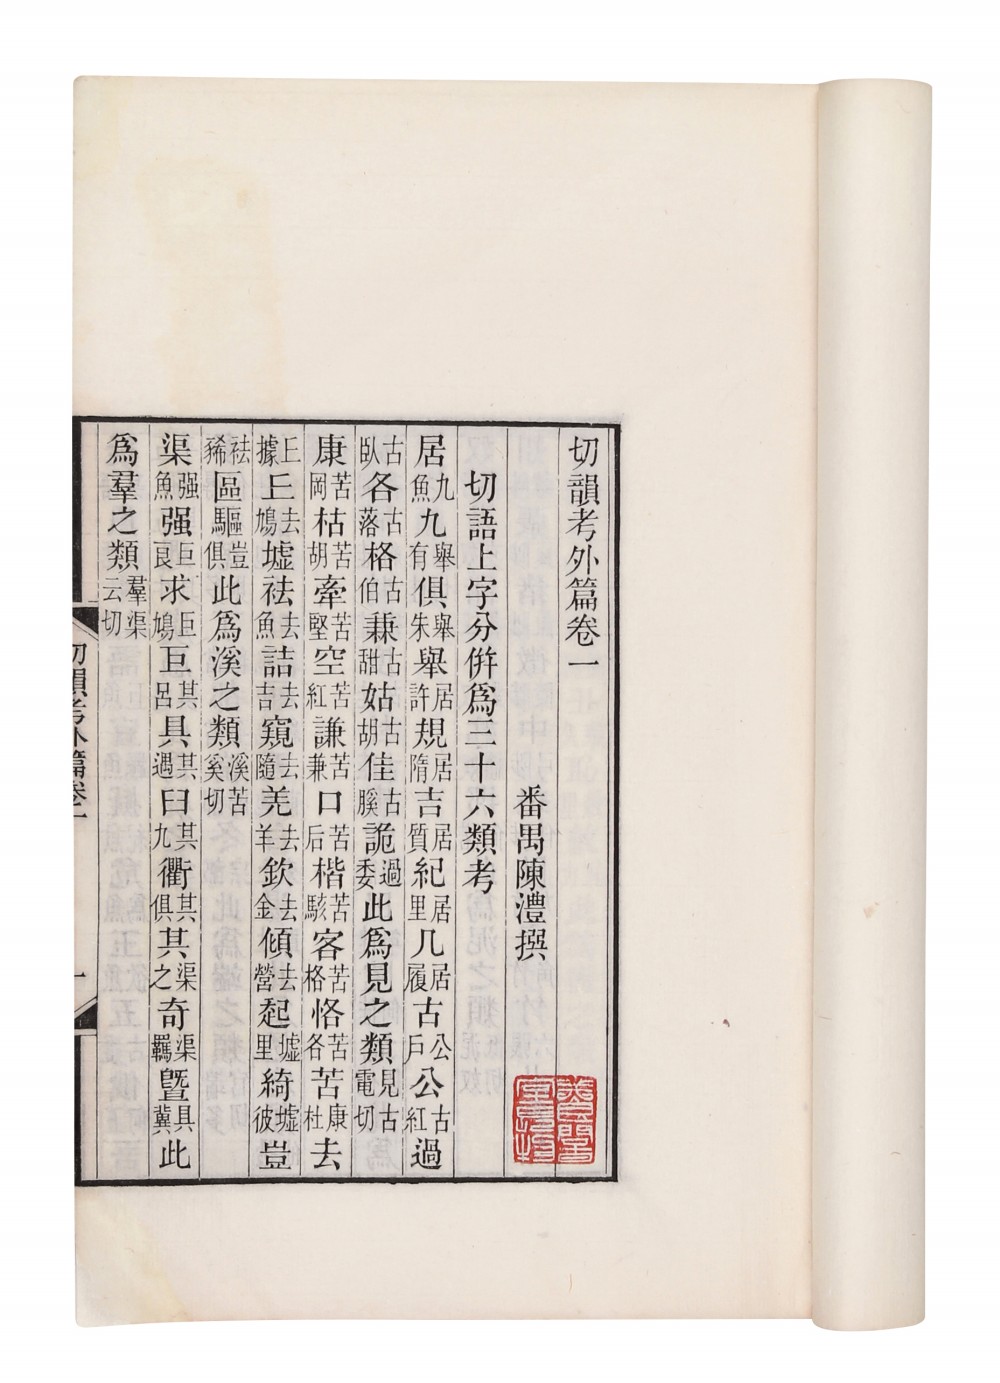 切韻考外篇卷一
番禺陳澧撰
切語上字分倂爲三十六類考
居九魚九舉有俱舉朱舉居許規居隋吉居質紀居里几居履古公戶公古紅過
古臥各古落格古伯兼古甜姑古胡佳古膎詭過委此爲見之類見古電切
康苦岡枯苦胡牽苦堅空苦紅謙苦兼口苦后楷苦駭客苦格恪苦各苦康杜去
𠀉據𠀉去鳩墟祛去魚詰去吉窺去隨羌去羊欽去金傾去營起墟里綺墟彼豈
祛豨區驅豈俱此爲溪之類溪苦奚切
渠强魚强巨良求巨鳩巨其呂具其遇臼其九衢其俱其渠之奇渠羈曁具冀此
爲羣之類羣渠云切
切韻考外篇卷一
一